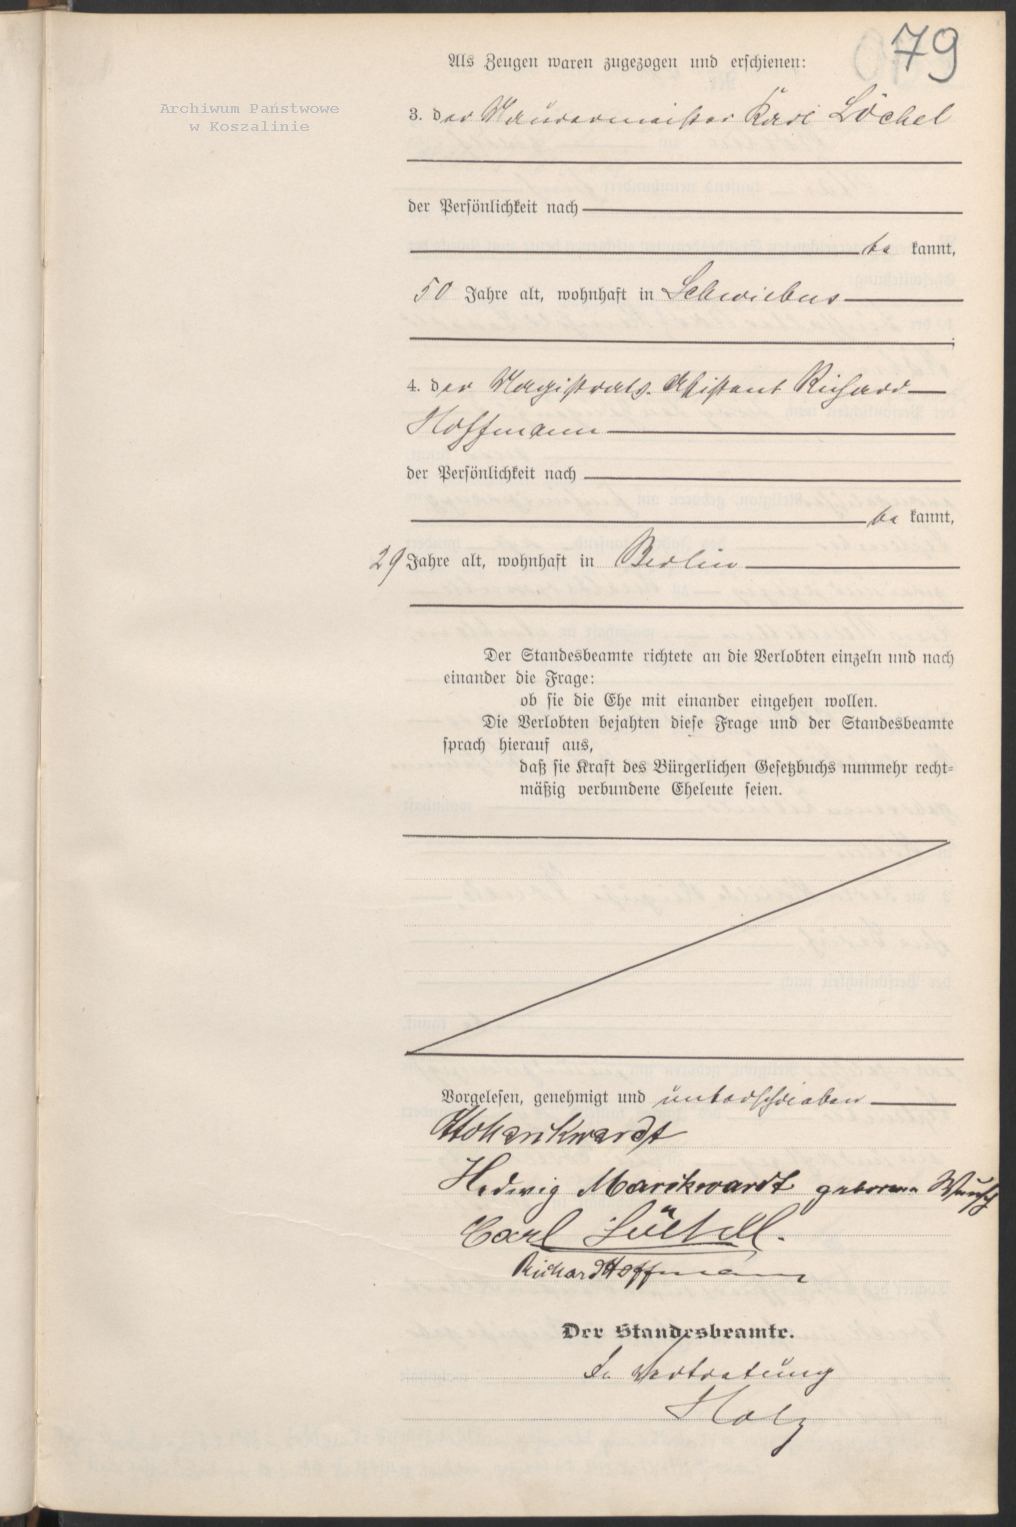 79
Als Zeugen waren zugezogen und erschienen:
Archiwum Państwowe
w Koszalinie
3. der Maurermeister Karl Löchel
der Persönlichkeit nach
be kannt,
50 Jahre alt, wohnhaft in Schwiebus
4. der Magistrats-Assistent Richard
Hoffmann
der Persönlichkeit nach
be kannt,
29 Jahre alt, wohnhaft in Berlin
Der Standesbeamte richtete an die Verlobten einzeln und nach
einander die Frage:
ob sie die Ehe mit einander eingehen wollen.
Die Verlobten bejahten diese Frage und der Standesbeamte
sprach hierauf aus,
daß sie Kraft des Bürgerlichen Gesetzbuchs nunmehr recht-
mäßig verbundene Eheleute seien.
Vorgelesen, genehmigt und unterschrieben
Marikwardt
Hedwig Marikwardt geborene
Carl Löchel.
Richard Hoffmann
Der Standesbeamte.
In Vertretung
Holz